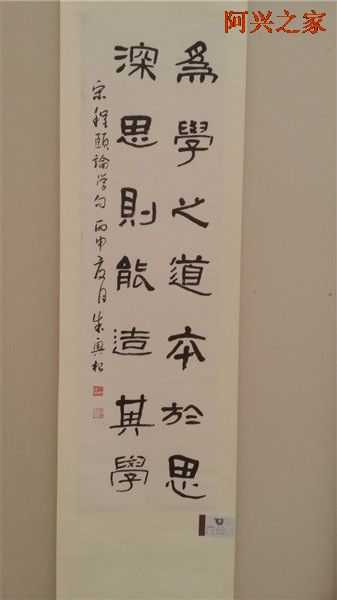 阿兴之家
為學之道本於思
深思則能造其學
宋程頤論學句 丙申夏月 朱興松